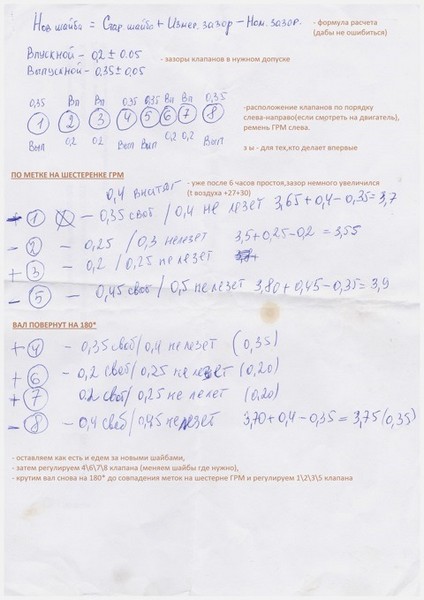 Нов шайба = Стар. шайба + Измер. зазор – Ном. зазор. - формула расчета
(дабы не ошибиться)
Впускной – 0,2 ± 0.05
Выпускной – 0,35 ± 0,05
- зазоры клапанов в нужном допуске
0,35 Вп Вп 0,35 0,35 Вп Вп 0,35
1 2 3 4 5 6 7 8
Вып 0,2 0,2 Вып Вып 0,2 0,2 Вып
-расположение клапанов по порядку
слева-направо(если смотреть на двигатель),
ремень ГРМ слева.
з ы - для тех,кто делает впервые
ПО МЕТКЕ НА ШЕСТЕРЕНКЕ ГРМ
0,4 внатяг - уже после 6 часов простоя,зазор немного увеличился
(t воздуха +27+30)
1 – 0,35 своб / 0,4 не лезет 3,65 + 0,4 – 0,35 = 3,7
– 2 – 0,25 / 0,3 не лезет 3,5 + 0,25 – 0,2 = 3,55
+ 3 – 0,2 / 0,25 не лезет
– 5 – 0,45 своб / 0,5 не лезет 3,80 + 0,45 – 0,35 = 3,9
ВАЛ ПОВЕРНУТ НА 180*
+ 4 – 0,35 своб / 0,4 не лезет (0,35)
+ 6 – 0,2 своб / 0,25 не лезет (0,20)
+ 7 0,2 своб / 0,25 не лезет (0,20)
– 8 – 0,4 своб / 0,45 не лезет 3,70 + 0,4 – 0,35 = 3,75 (0,35)
- оставляем как есть и едем за новыми шайбами,
- затем регулируем 4\6\7\8 клапана (меняем шайбы где нужно),
- крутим вал снова на 180* до совпадения меток на шестерне ГРМ и регулируем 1\2\3\5 клапана